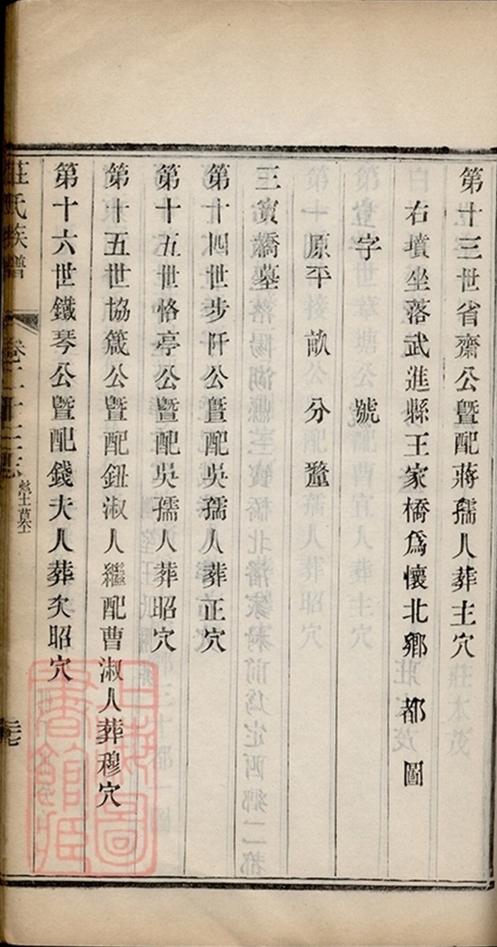 第十三世省齋公暨配蔣孺人葬主穴
右墳坐落武進縣王家橋爲懷北鄉 都 圖
字 號
原平 畝 分 釐
三寳橋墓
第十四世步阡公暨配吳孺人葬正穴
第十五世恪亭公暨配吳孺人葬昭穴
第十五世協箴公暨配鈕淑人繼配曹淑人葬穆穴
第十六世鐵琴公暨配錢夫人葬次昭穴
莊氏族譜
卷二十二 塋墓